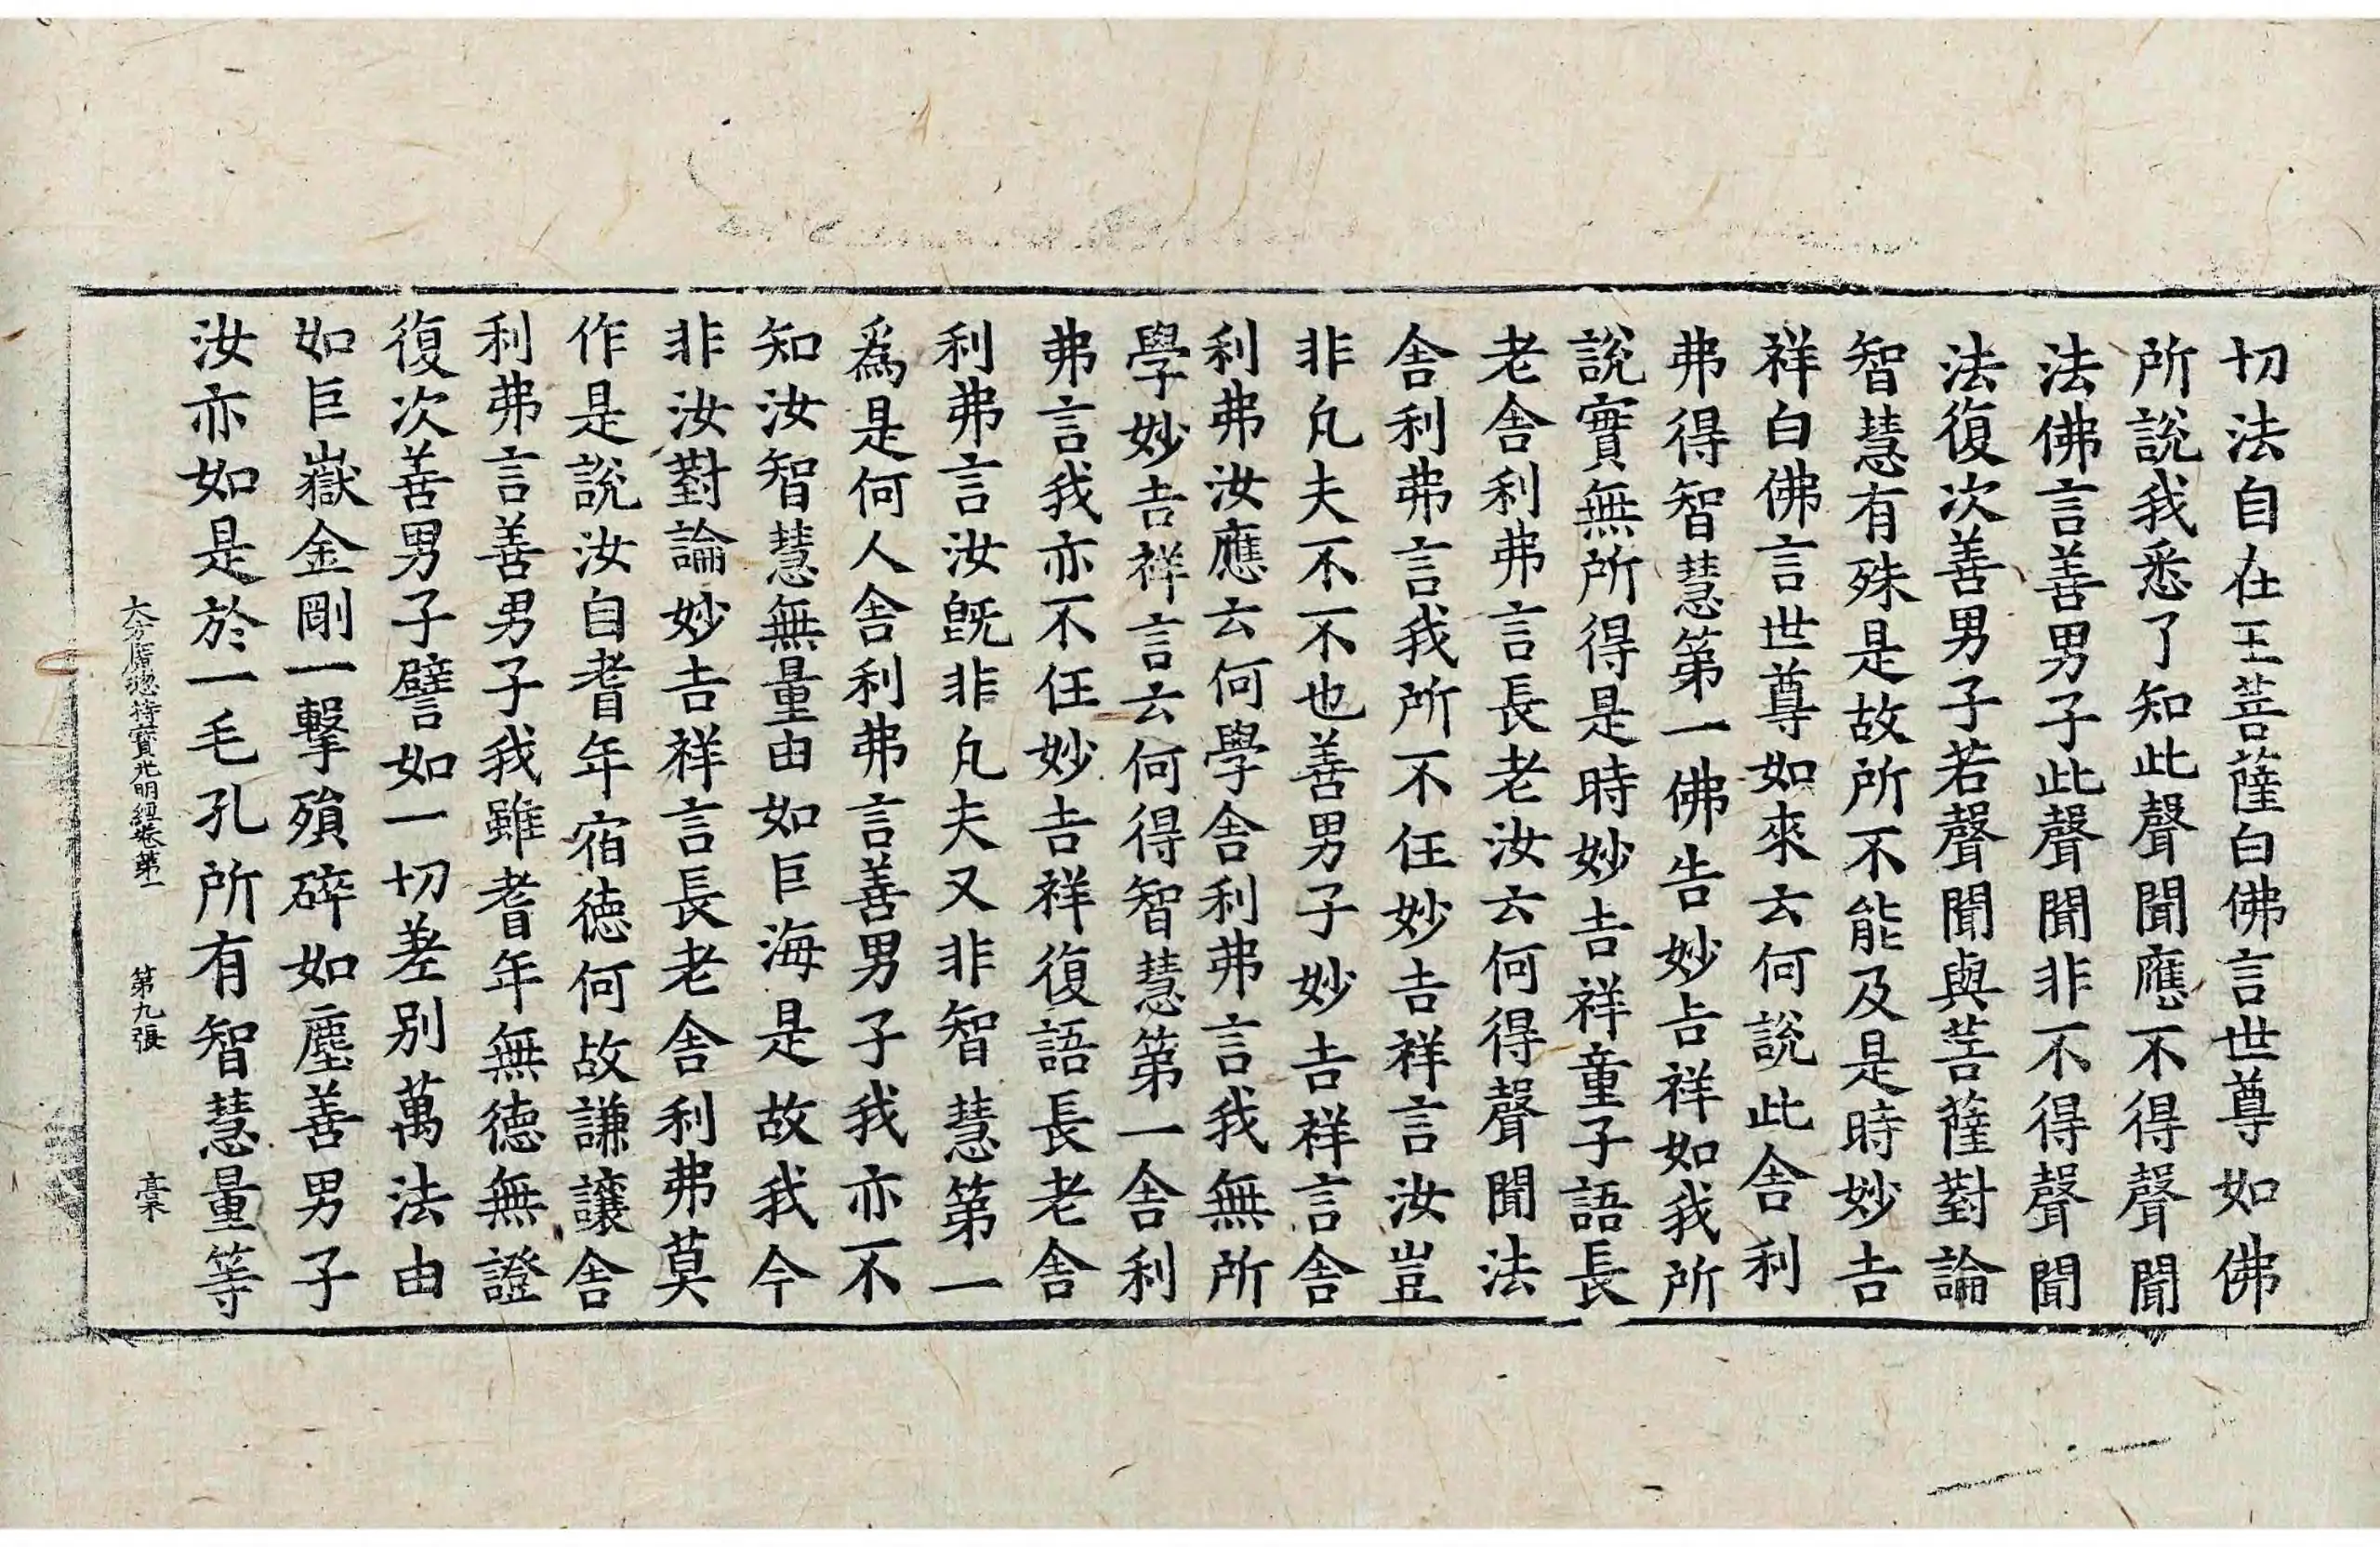 切法自在王菩薩白佛言世尊如佛
所說我悉了知此聲聞應不得聲聞
法佛言善男子此聲聞非不得聲聞
法復次善男子若聲聞與菩薩對論
智慧有殊是故所不能及是時妙吉
祥白佛言世尊如來云何說此舍利
弗得智慧第一佛告妙吉祥如我所
說實無所得是時妙吉祥童子語長
老舍利弗言長老汝云何得聲聞法
舍利弗言我所不任妙吉祥言汝豈
非凢夫不不也善男子妙吉祥言舍
利弗汝應云何學舍利弗言我無所
學妙吉祥言云何得智慧第一舍利
弗言我亦不任妙吉祥復語長老舍
利弗言汝旣非凢夫又非智慧第一
爲是何人舍利弗言善男子我亦不
知汝智慧無量由如巨海是故我今
非汝對論妙吉祥言長老舍利弗莫
作是說汝自耆年宿德何故謙讓舍
利弗言善男子我雖耆年無德無證
復次善男子譬如一切差别萬法由
如巨嶽金剛一擊殞碎如塵善男子
汝亦如是於一毛孔所有智慧量等
大方廣惣持寶光明經卷第一 第九張 槀